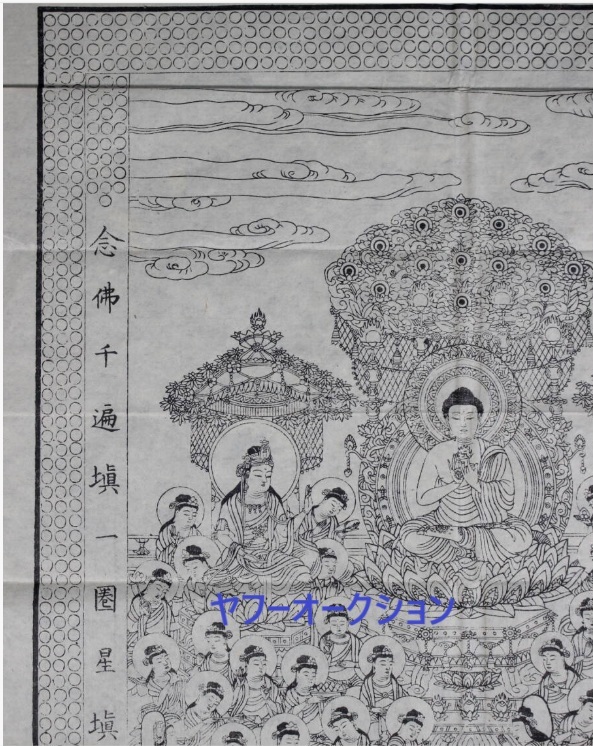 念佛千遍塡一圏星塡
ヤフーオークション